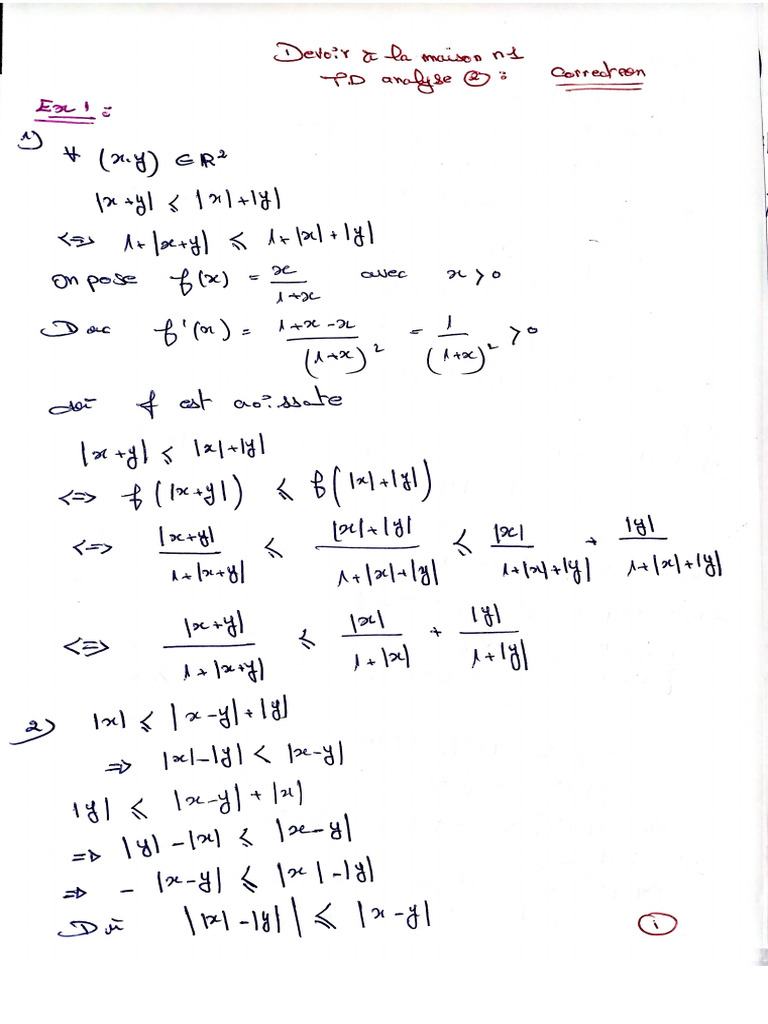 Devoir à la maison n1
T.D analyse ② : Correction
Ex 1 :
1) ∀ (x.y) ∈ ℝ²
|x+y| ≤ |x|+|y|
<=> 1+|x+y| ≤ 1+|x|+|y|
on pose f(x) = x/(1+x) avec x > 0
Donc f'(x) = (1+x-x)/(1+x)² = 1/(1+x)² > 0
d'où f est croissate
|x+y| ≤ |x|+|y|
<=> f(|x+y|) ≤ f(|x|+|y|)
<=> |x+y|/(1+|x+y|) ≤ (|x|+|y|)/(1+|x|+|y|) ≤ |x|/(1+|x|+|y|) + |y|/(1+|x|+|y|)
<=> |x+y|/(1+|x+y|) ≤ |x|/(1+|x|) + |y|/(1+|y|)
2) |x| ≤ |x-y|+|y|
=> |x|-|y| < |x-y|
|y| ≤ |x-y| + |x|
=> |y|-|x| ≤ |x-y|
=> -|x-y| ≤ |x|-|y|
D'où ||x|-|y|| ≤ |x-y|
i